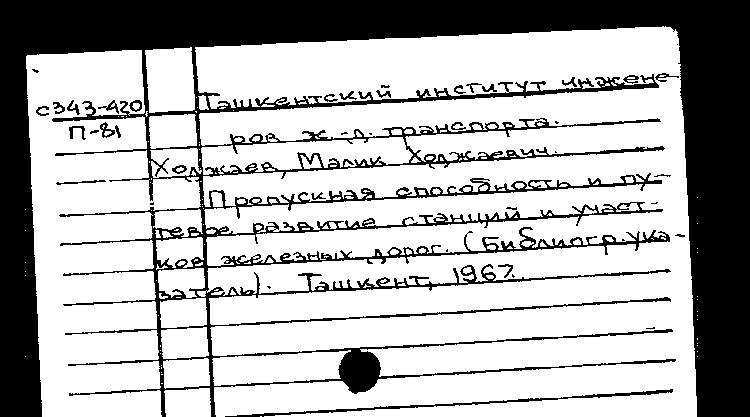 Ташкентский институт инжене-
с343-420
П-81
ров ж.-д. транспорта.
Ходжаев, Малик Ходжаевич.
Пропускная способность и пу-
тевое развитие станций и участ-
ков железных дорог. (Библиогр. ука-
затель). Ташкент, 1967.